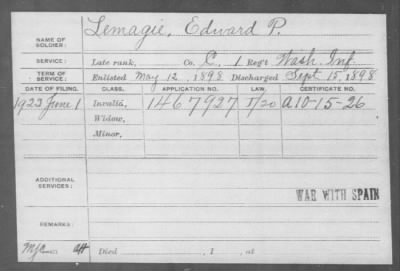 NAME OF SOLDIER: Lemagie, Edward P.
SERVICE: Late rank, Co. C, 1 Reg't Wash. Inf.
TERM OF SERVICE: Enlisted May 12, 1898 Discharged Sept. 15, 1898
DATE OF FILING. CLASS. APPLICATION NO. LAW. CERTIFICATE NO.
1923 June 1 Invalid, 1467927 A10-15-26
Widow,
Minor,
ADDITIONAL SERVICES:
WAR WITH SPAIN
REMARKS:
Died , 1 , at